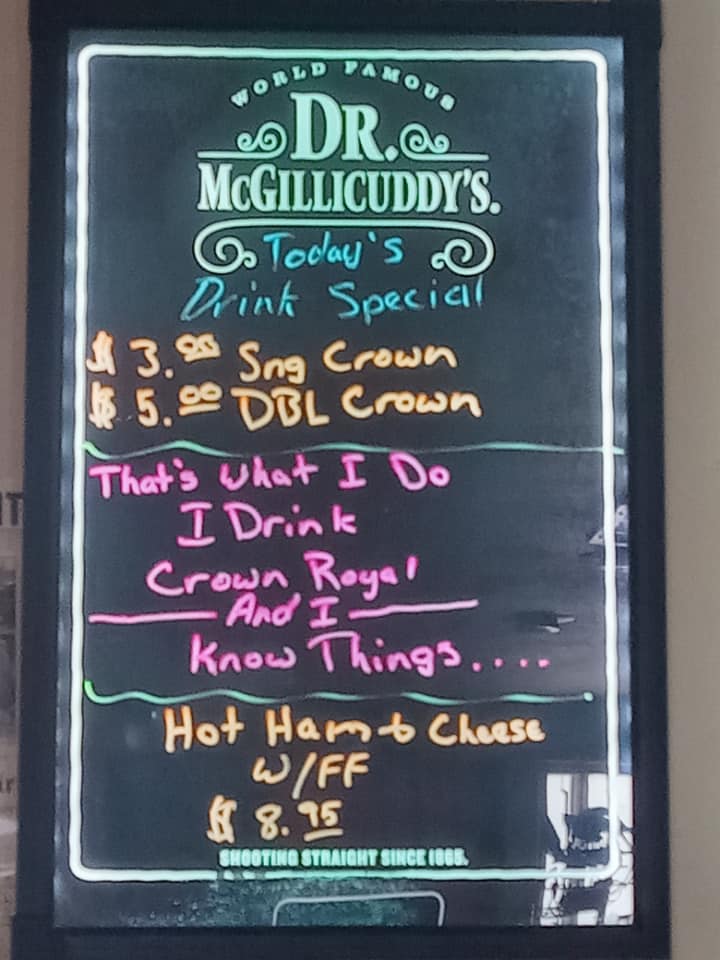 WORLD FAMOUS
DR.
McGILLICUDDY'S.
Today's
Drink Special
$ 3.00 Sng Crown
$ 5.00 DBL Crown
That's What I Do
I Drink
Crown Royal
And I
Know Things....
Hot Ham & Cheese
W/FF
$ 8.95
SHOOTING STRAIGHT SINCE 1865.